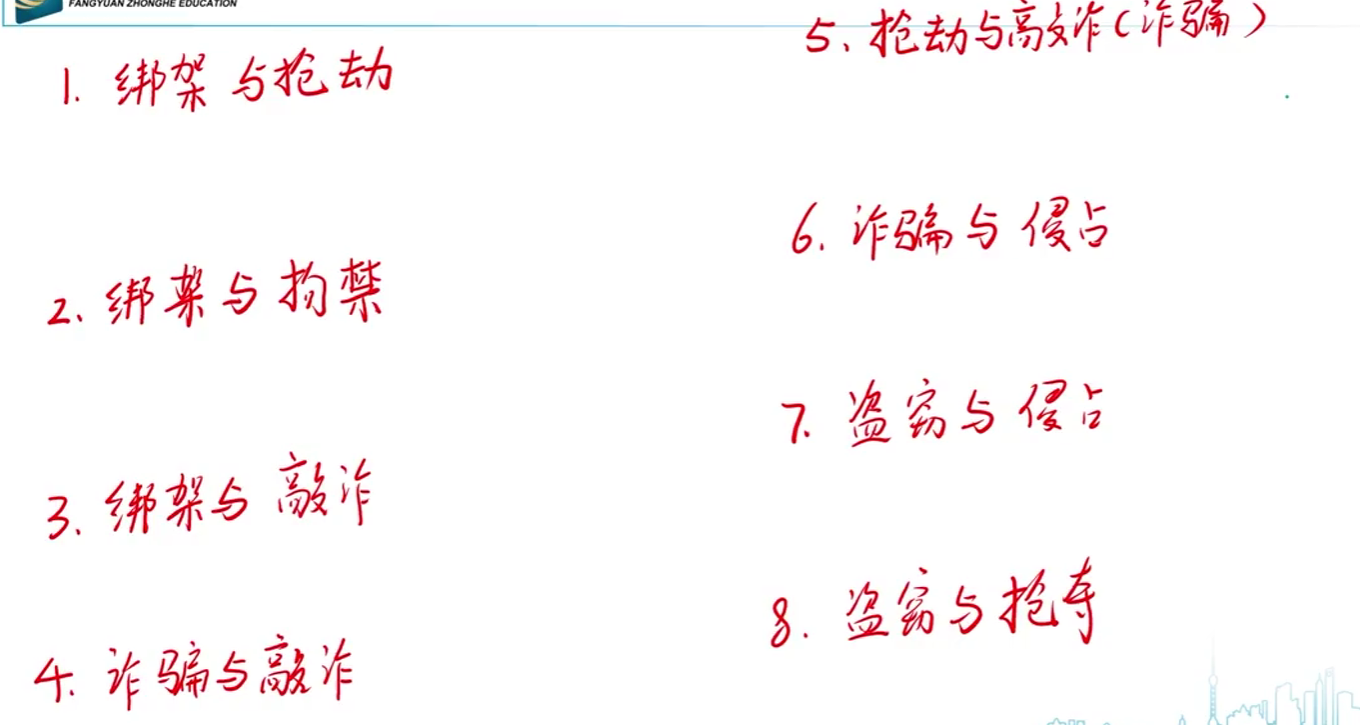 FANGYUAN ZHONGHE EDUCATION
1. 绑架与抢劫
2、绑架与拘禁
3、绑架与敲诈
4、诈骗与敲诈
5、抢劫与敲诈(诈骗)
6、诈骗与侵占
7、盗窃与侵占
8、盗窃与抢夺